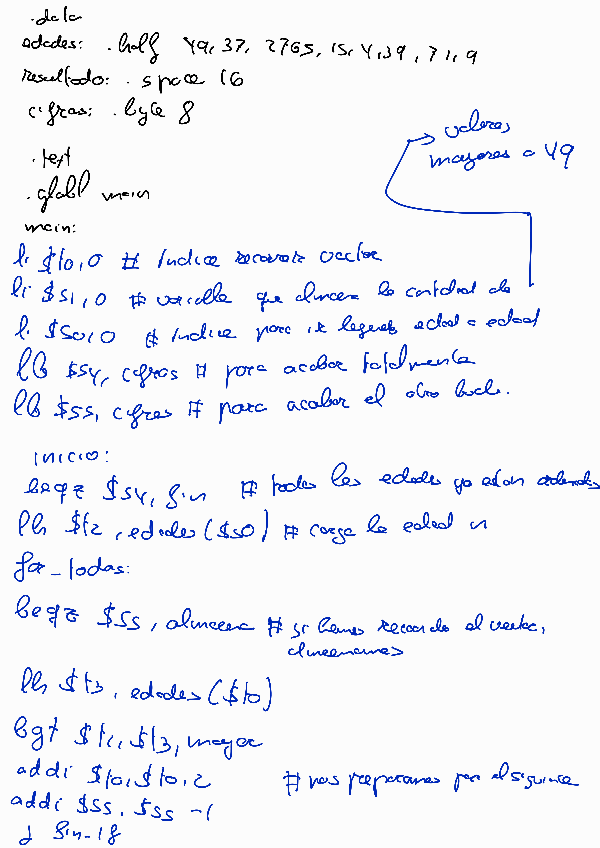 .data
edades: .half 49, 37, 2765, 15, 4, 39, 71, 9
resultado: .space 16
cifras: .byte 8
.text
.globl main
main:
→ valores
mayores a 49
li $t0, 0 # Indice recorrer vector
li $s1, 0 # variable que almacena la cantidad de
li $s0, 0 # Indice para ir leyendo edad a edad
lb $s4, cifras # para acabar totalmente
lb $s5, cifras # para acabar el otro bucle.
inicio:
beqz $s4, fin # todas las edades ya están ordenadas
lh $t2, edades($s0) # carga la edad n
for_todas:
beqz $s5, almacena # si hemos recorrido el vector,
almacenamos
lh $t3, edades($t0)
bgt $t2, $t3, mayor
addi $t0, $t0, 2 # nos preparamos por el siguiente
addi $s5, $s5 -1
j fin-if